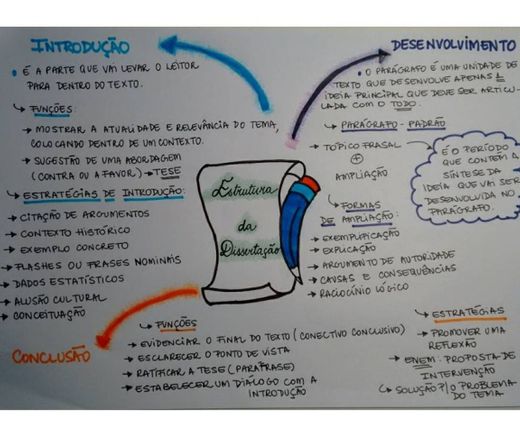 INTRODUÇÃO
• É A PARTE QUE VAI LEVAR O LEITOR
PARA DENTRO DO TEXTO.
↳ FUNÇÕES:
→ MOSTRAR A ATUALIDADE E RELEVÂNCIA DO TEMA,
COLOCANDO DENTRO DE UM CONTEXTO.
→ SUGESTÃO DE UMA ABORDAGEM
(CONTRA OU A FAVOR) → TESE
↳ ESTRATÉGIAS DE INTRODUÇÃO:
→ CITAÇÃO DE ARGUMENTOS
→ CONTEXTO HISTÓRICO
→ EXEMPLO CONCRETO
→ FLASHES OU FRASES NOMINAIS
→ DADOS ESTATÍSTICOS
→ ALUSÃO CULTURAL
→ CONCEITUAÇÃO
Estrutura
da
Dissertação
DESENVOLVIMENTO
• O PARÁGRAFO É UMA UNIDADE DE
TEXTO QUE DESENVOLVE APENAS 1
IDEIA PRINCIPAL QUE DEVE SER ARTICU-
LADA COM O TODO.
↳ PARÁGRAFO-PADRÃO
→ TÓPICO FRASAL
+
AMPLIAÇÃO
É O PERÍODO
QUE CONTÉM A
SÍNTESE DA
IDEIA QUE VAI SER
DESENVOLVIDA NO
PARÁGRAFO.
↳ FORMAS
DE AMPLIAÇÃO:
→ EXEMPLIFICAÇÃO
→ EXPLICAÇÃO
→ ARGUMENTO DE AUTORIDADE
→ CAUSAS E CONSEQUÊNCIAS
→ RACIOCÍNIO LÓGICO
CONCLUSÃO
↳ FUNÇÕES
→ EVIDENCIAR O FINAL DO TEXTO (CONECTIVO CONCLUSIVO)
→ ESCLARECER O PONTO DE VISTA
→ RATIFICAR A TESE (PARÁFRASE)
→ ESTABELECER UM DIÁLOGO COM A
INTRODUÇÃO
↳ ESTRATÉGIAS
→ PROMOVER UMA
REFLEXÃO
→ ENEM: PROPOSTA DE
INTERVENÇÃO
↳ SOLUÇÃO P/ O PROBLEMA
DO TEMA.